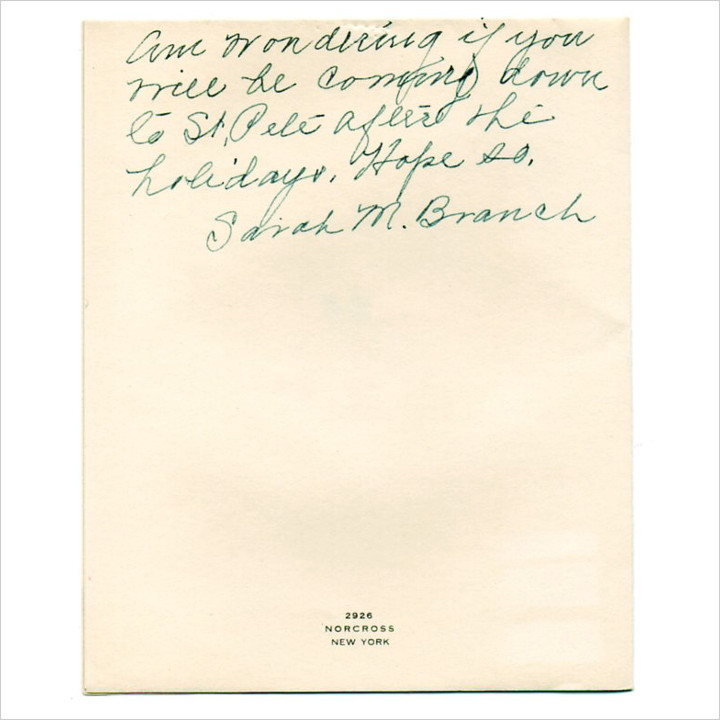 Am wondering if you
will be coming down
to St. Pete after the
holidays. Hope so.
Sarah M. Branch
2926
NORCROSS
NEW YORK